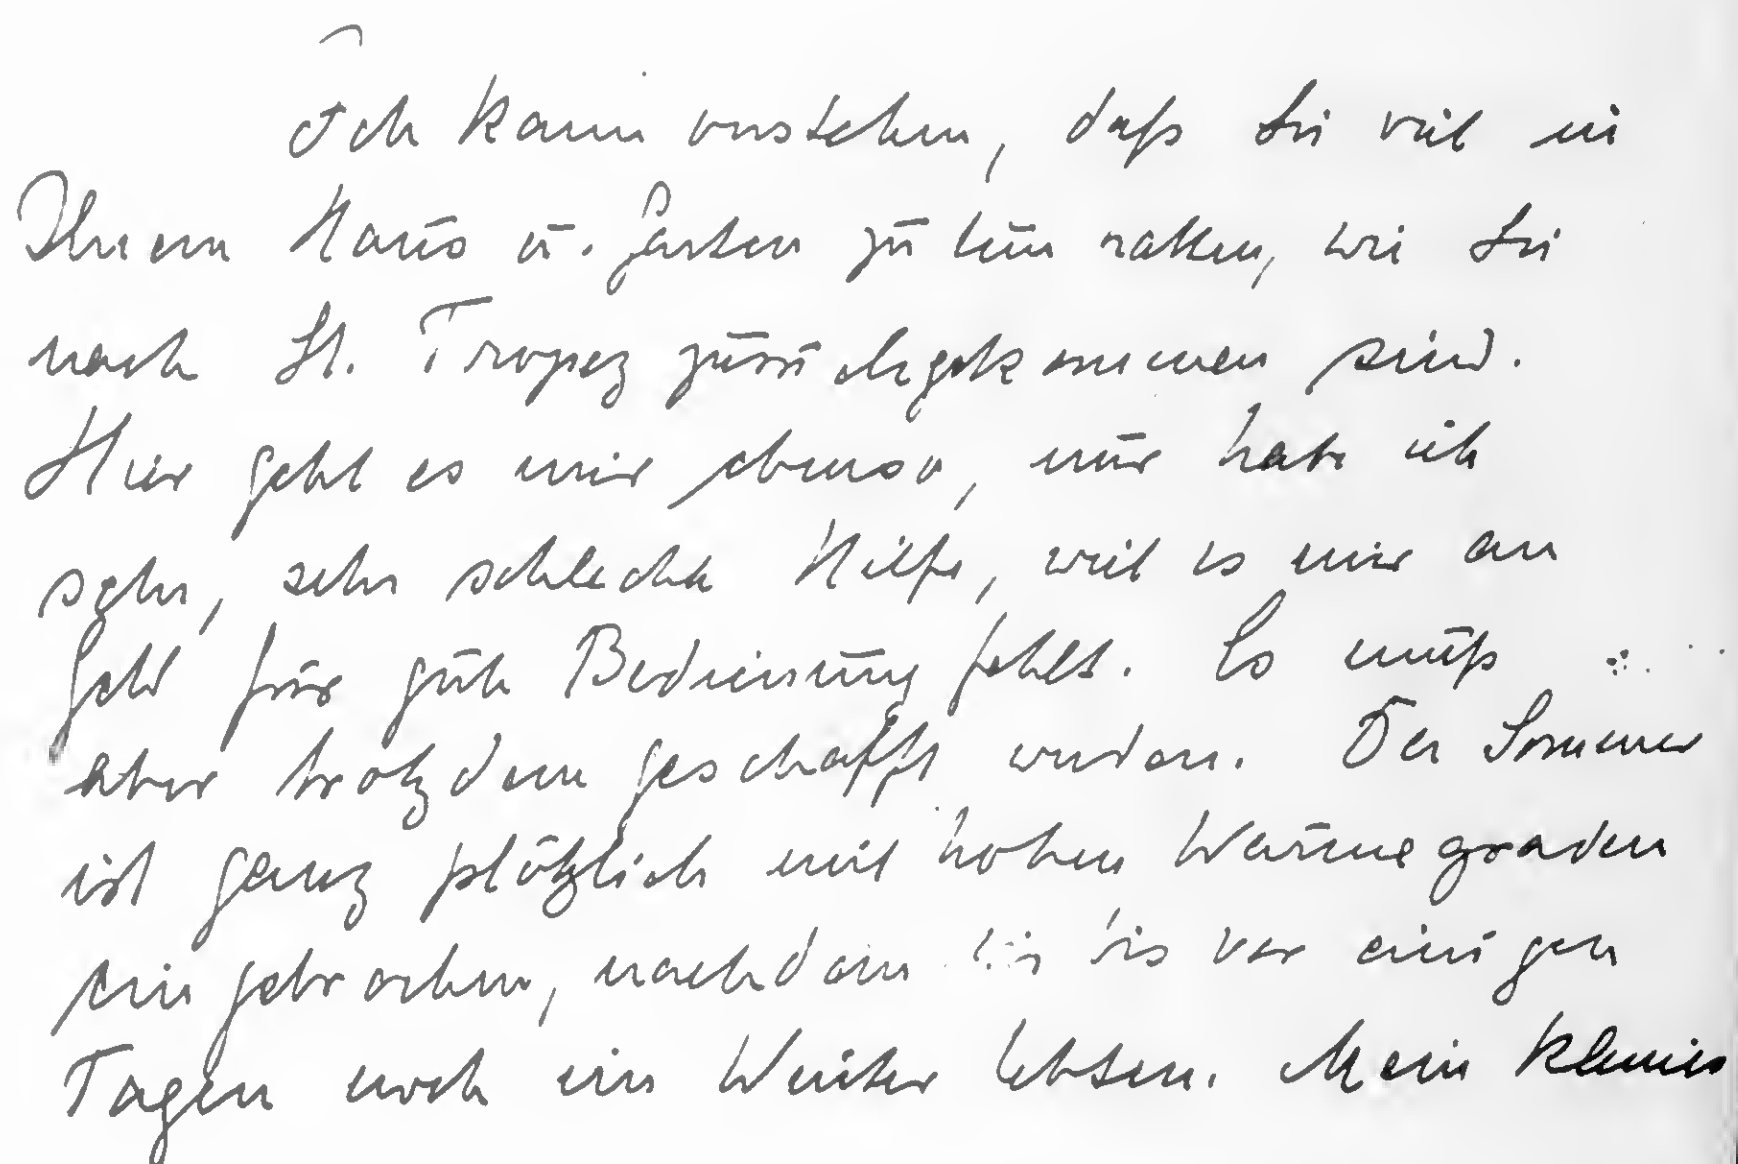 Ich kann verstehen, daß Sie viel in
Ihrem Haus u. Garten zu tun hatten, wie Sie
nach St. Tropez zurückgekommen sind.
Hier geht es mir ebenso, nur habe ich
sehr, sehr schlechte Hilfe, weil es mir an
Geld für gute Bedienung fehlt. Es muß
aber trotzdem geschafft werden. Der Sommer
ist ganz plötzlich mit hohen Wärmegraden
eingebrochen, nachdem wir bis vor einigen
Tagen noch im Winter lebten. Mein kleines